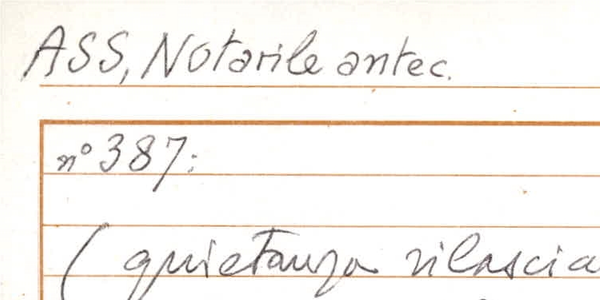 ASS, Notarile antec.
n° 387:
( quietanza rilascia